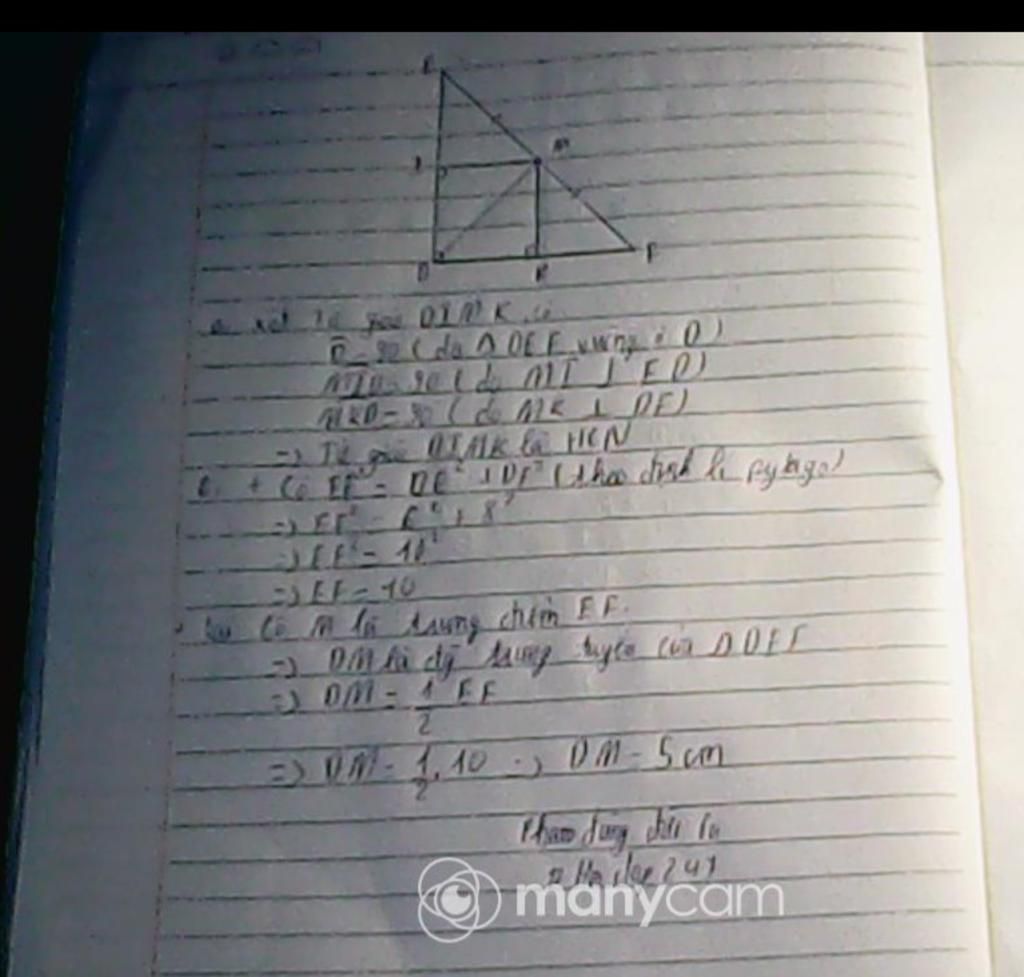 E
I
M
D
K
F
a. xét Tứ giác DIMK có
D = 90 (do Δ DEF vuông ở D)
MID = 90 (do MI ⊥ ED)
MKD = 90 (do MK ⊥ DF)
=> Tứ giác DIMK là HCN
+ Có EF² = DE² + DF² (theo định lí pytago)
=> EF² = 6² + 8²
=> EF² = 10²
=> EF = 10
có M là trung điểm EF.
=> DM là đg trung tuyến của Δ DEF
=> DM = 1/2 EF
=> DM = 1/2 . 10 => DM = 5cm
manycam